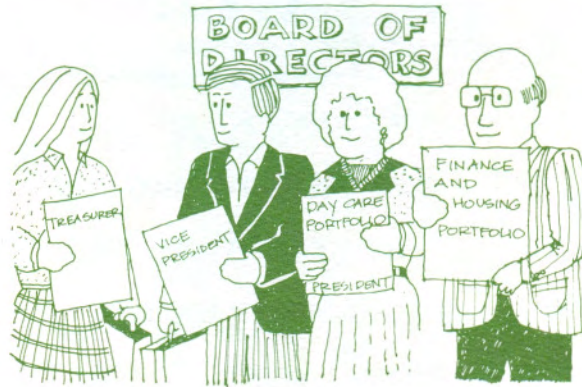 BOARD OF
DIRECTORS
TREASURER
VICE
PRESIDENT
DAY CARE
PORTFOLIO
PRESIDENT
FINANCE
AND
HOUSING
PORTFOLIO